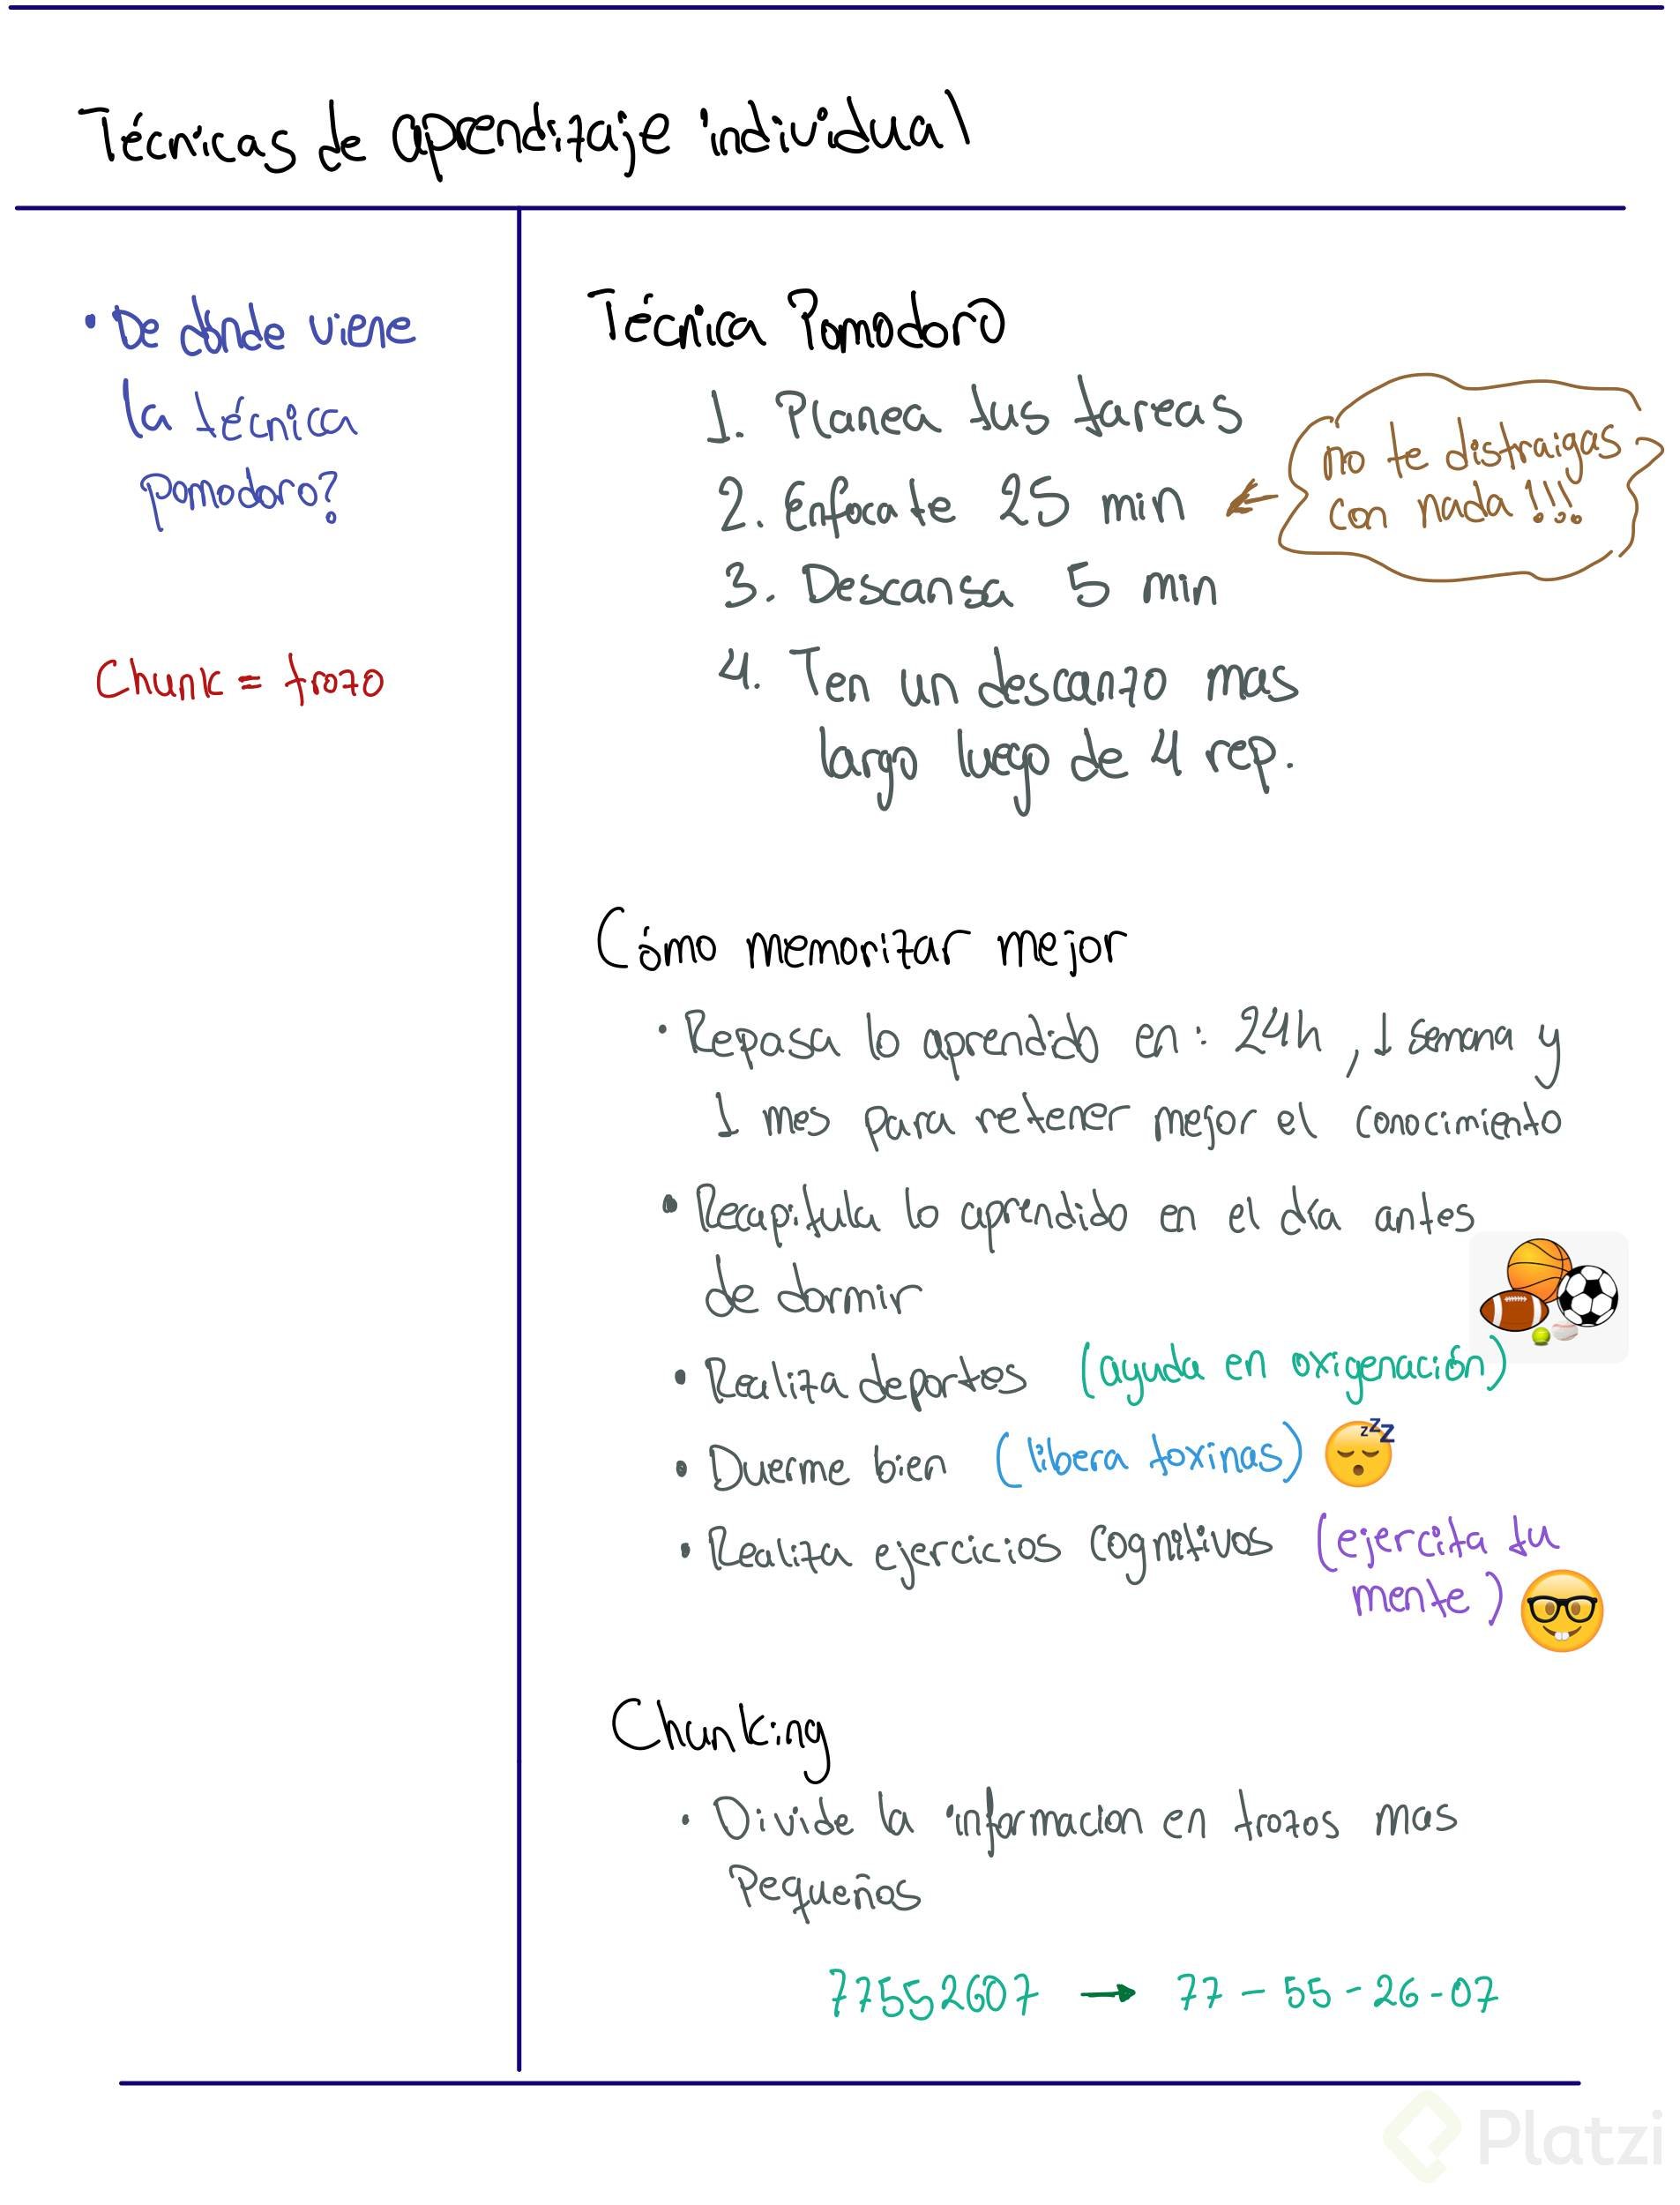 Técnicas de aprendizaje individual
• De dónde viene
la técnica
pomodoro?
Chunk = trozo
Técnica Pomodoro
1. Planea tus tareas
2. Enfocate 25 min
no te distraigas
con nada!!!
3. Descansa 5 min
4. Ten un descanzo mas
largo luego de 4 rep.
Cómo memorizar mejor
• Repasa lo aprendido en: 24h, 1 semana y
1 mes para retener mejor el conocimiento
• Recapitula lo aprendido en el día antes
de dormir
• Realiza deportes (ayuda en oxigenación)
• Duerme bien (libera toxinas)
• Realiza ejercicios cognitivos (ejercita tu
mente)
Chunking
• Divide la informacion en trozos mas
Pequeños
77552607 → 77 - 55 - 26 - 07
Platzi